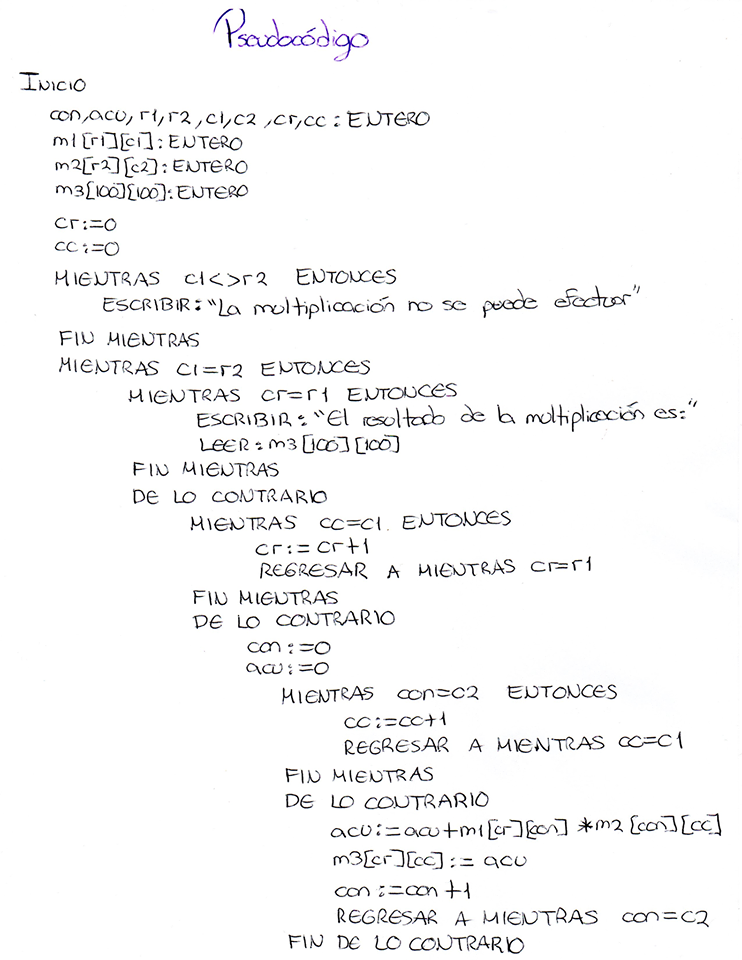 Pseudocódigo
INICIO
con,acu,r1,r2,c1,c2,cr,cc:ENTERO
m1[r1][c1]:ENTERO
m2[r2][c2]:ENTERO
m3[100][100]:ENTERO
cr:=0
cc:=0
MIENTRAS c1<>r2 ENTONCES
ESCRIBIR:"La multiplicación no se puede efectuar"
FIN MIENTRAS
MIENTRAS c1=r2 ENTONCES
MIENTRAS cr=r1 ENTONCES
ESCRIBIR:"El resultado de la multiplicación es:"
LEER:m3[100][100]
FIN MIENTRAS
DE LO CONTRARIO
MIENTRAS cc=c1 ENTONCES
cr:=cr+1
REGRESAR A MIENTRAS cr=r1
FIN MIENTRAS
DE LO CONTRARIO
con:=0
acu:=0
MIENTRAS con=c2 ENTONCES
cc:=cc+1
REGRESAR A MIENTRAS cc=c1
FIN MIENTRAS
DE LO CONTRARIO
acu:=acu+m1[cr][con]*m2[con][cc]
m3[cr][cc]:=acu
con:=con+1
REGRESAR A MIENTRAS con=c2
FIN DE LO CONTRARIO